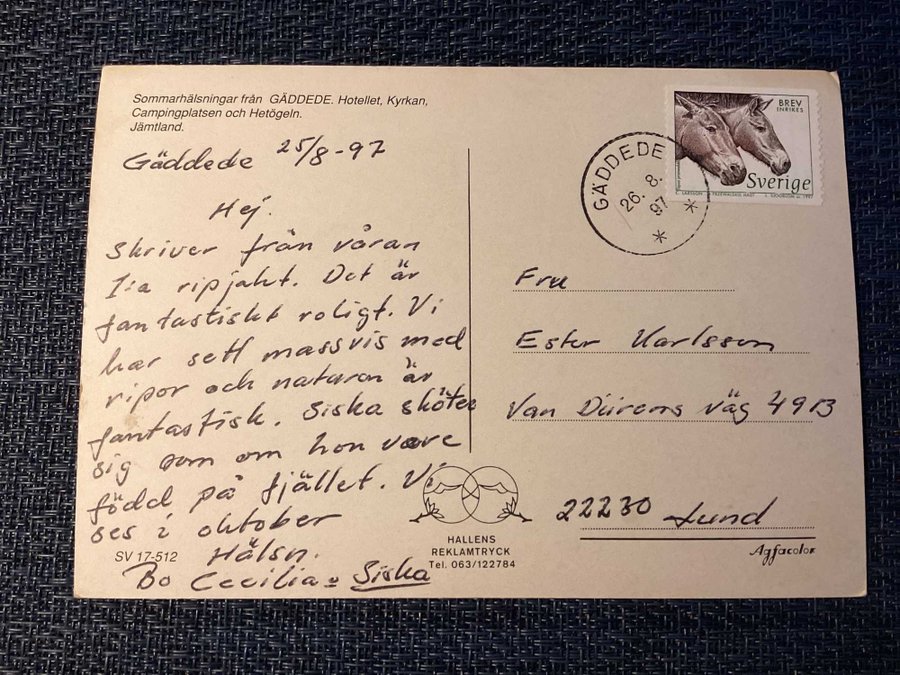 Sommarhälsningar från GÄDDEDE. Hotellet, Kyrkan,
Campingplatsen och Hetögeln.
Jämtland.
Gäddede 25/8-97
Hej.
Skriver från våran
1:a ripjakt. Det är
fantastiskt roligt. Vi
har sett massvis med
ripor och naturen är
fantastisk. Siska sköter
sig som om hon vore
född på fjället. Vi
ses i oktober
Hälsn.
Bo Cecilia o Siska
SV 17-512
HALLENS
REKLAMTRYCK
Tel. 063/122784
BREV
INRIKES
Sverige
GÄDDEDE
26. 8.
97
Fru
Ester Karlsson
Van Dürens väg 49B
22230 Lund
Agfacolor